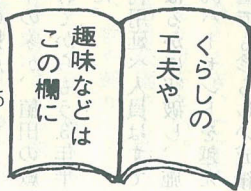 くらしの
工夫や
趣味などは
この欄に